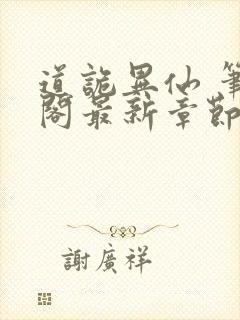 道詭異仙 筆
閣最新章節
謝廣祥